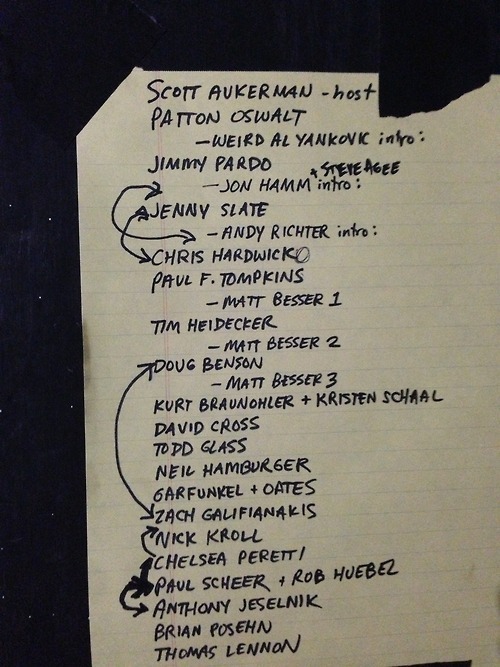 SCOTT AUKERMAN - host
PATTON OSWALT
- WEIRD AL YANKOVIC intro:
JIMMY PARDO
+ STEVE AGEE
- JON HAMM intro:
JENNY SLATE
- ANDY RICHTER intro:
CHRIS HARDWICK
PAUL F. TOMPKINS
- MATT BESSER 1
TIM HEIDECKER
- MATT BESSER 2
DOUG BENSON
- MATT BESSER 3
KURT BRAUNOHLER + KRISTEN SCHAAL
DAVID CROSS
TODD GLASS
NEIL HAMBURGER
GARFUNKEL + OATES
ZACH GALIFIANAKIS
NICK KROLL
CHELSEA PERETTI
PAUL SCHEER + ROB HUEBEL
ANTHONY JESELNIK
BRIAN POSEHN
THOMAS LENNON